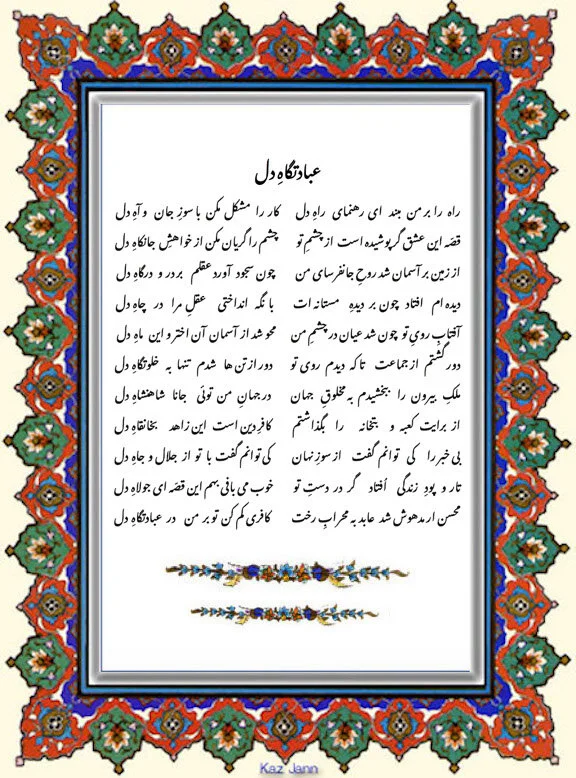 عبادتگاهِ دل
راه را بر من بند ای رهنمای راهِ دل کار را مشکل مکن با سوزِ جان و آهِ دل
قصّه این عشق گر پوشیده است از چشمِ تو چشم را گریان مکن از خواهشِ جانکاهِ دل
از زمین بر آسمان شد روحِ جانفرسای من چون سجود آورد عقلم بر در و درگاهِ دل
دیده ام افتاد چون بر دیدهِ مستانه ات با نگه انداختی عقلِ مرا در چاهِ دل
آفتابِ رویِ تو چون شد عیان در چشمِ من محو شد از آسمان آن اختر و این ماهِ دل
دور گشتم از جماعت تا که دیدم روی تو دور از تن ها شدم تنها به خلوتگاهِ دل
ملکِ بیرون را ببخشیدم به مخلوقِ جهان در جهانِ من توئی جانا شاهنشاهِ دل
از برایت کعبه و بتخانه را بگذاشتم کافرِ دین است این زاهد بخانقاهِ دل
بی خبر را کی توانم گفت از سوزِ نهان کی توانم گفت با تو از جلال و جاهِ دل
تار و پودِ زندگی اُفتاد گر در دستِ تو خوب می بافی بهم این قصّه ای جولاهِ دل
محسن ار مدهوش شد عابد به محرابِ رخت کافری کم کن تو بر من در عبادتگاهِ دل
Kaz Jann